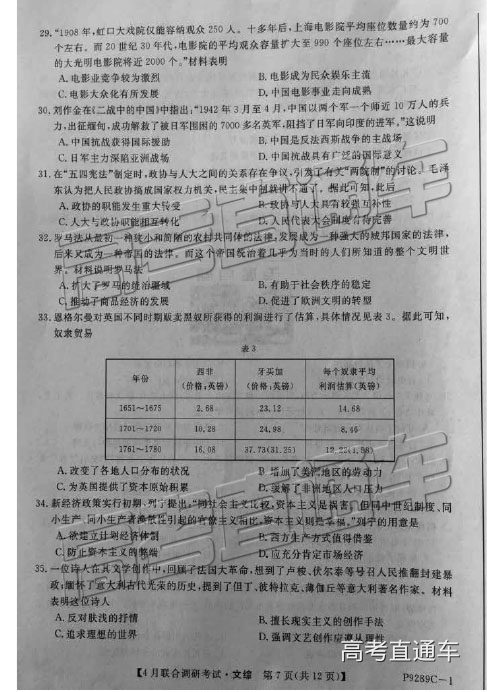 29.“1908年,虹口大戏院仅能容纳观众250人。十多年后,上海电影院平均座位数量约为700
个左右。而20世纪30年代,电影院的平均观众容量扩大至990个座位左右……最大容量
的大光明电影院将近2000个。”材料表明
A.电影业竞争较为激烈
B.电影成为民众娱乐主流
C.电影大众化有所发展
D.电影事业走向成熟
30.刘作金在《二战中的中国》中指出:“1942年3月至4月,中国以两个军一个师近10万人的兵
力,出征缅甸,成功解救了被日军围困的7000多名英军,阻挡了日军向印度的进军。”这说明
A.中国抗战获得国际援助
B.中国是反法西斯战争的主战场
C.日军主力深陷亚洲战场
D.中国抗战具有广泛的国际意义
31.在“五四宪法”制定时,政协与人大之间的关系存在争议,引发了有关“两院制”的讨论。毛泽
东认为把人民政协搞成国家权力机关,民主集中制就讲不通了。据此可知,此后
A.政协的职能发生重大转变
B.政协与人大具有较强互补性
C.人大与政协职能相互转化
D.人民代表大会制度有待完善
32.罗马法从最初一种狭小和简陋的农村共同体的法律,发展成为一种强大的城邦国家的法律,
后来又成为一帝国的法律。而这个帝国统治着几乎为当时的人们所知道的整个文明世
界。材料说明罗马法
A.扩大了罗马的统治疆域
B.有助于社会秩序的稳定
C.推动了商品经济的发展
D.促进了欧洲文明的转型
33.恩格尔曼对英国不同时期贩卖黑奴所获得的利润进行了估算,具体情况见表3。据此可知,
奴隶贸易
表3
年份 西非(价格:英镑) 牙买加(价格:英镑) 每个奴隶平均利润估算(英镑)
1651~1675 2.68 23.12 14.68
1701~1720 10.28 24.98 8.46
1761~1780 16.08 37.73(31.25) 12.22(1.58)
A.改变了各地人口分布的状况
B.增加了美洲地区的劳动力
C.为英国提供了资本来源
D.缓解了非洲地区人口压力
34.新经济政策实行初期,列宁提出:“同社会主义比较,资本主义是祸害。但同中世纪制度、同
小生产、同小生产者涣散性引起的官僚主义相比,资本主义则是幸福。”列宁的用意是
A.欲建立计划经济体制
B.西方生产方式值得借鉴
C.防止资本主义的弊端
D.应充分肯定市场经济
35.一位诗人在其文学创作中,回顾了法国大革命,想到了卢梭、伏尔泰等号召人民推翻封建暴
政;缅怀了意大利古代光荣的历史,提到了但丁、彼特拉克、薄伽丘等意大利著名作家。材料
表明这位诗人
A.反对肤浅的抒情
B.擅长现实主义的创作手法
C.追求理想的世界
D.强调文艺创作遵从理性
【4月联合调研考试·文综 第7页(共12页)】
P9289C—1
高考直通车
高考直通车